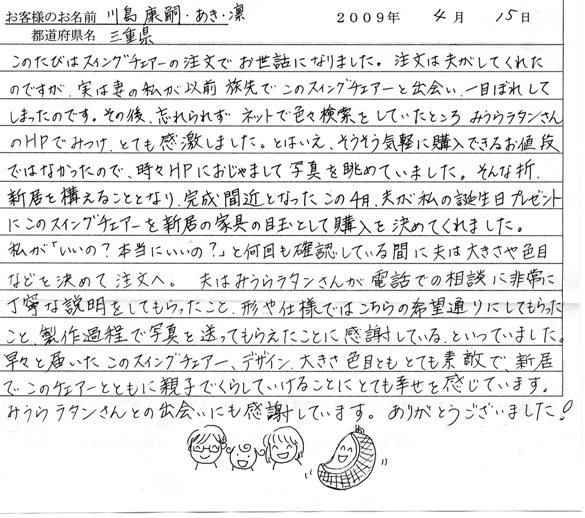 お客様のお名前 川島 康嗣・あき・凛 2009年 4月 15日
都道府県名 三重県
このたびはスイングチェアーの注文でお世話になりました。注文は夫がしてくれた
のですが、実は妻の私が以前 旅先でこのスイングチェアーと出会い、一目ぼれして
しまったのです。その後、忘れられず ネットで色々検索をしていたところ みうらラタンさん
のHPでみつけ、とても感激しました。とはいえ、そうそう気軽に購入できるお値段
ではなかったので、時々HPにおじゃまして写真を眺めていました。そんな折、
新居を構えることとなり、完成間近となったこの4月、夫が私の誕生日プレゼント
にこのスイングチェアーを新居の家具の目玉として購入を決めてくれました。
私が「いいの？本当にいいの？」と何回も確認している間に夫は大きさや色目
などを決めて注文へ。 夫はみうらラタンさんが電話での相談に非常に
丁寧な説明をしてもらったこと、形や仕様ではこちらの希望通りにしてもらった
こと、製作過程で写真を送ってもらえたことに感謝している、といっていました。
早々と届いたこのスイングチェアー、デザイン、大きさ、色目とも とても素敵で、新居
でこのチェアーとともに親子でくらしていけることにとても幸せを感じています。
みうらラタンさんとの出会いにも感謝しています。ありがとうございました！